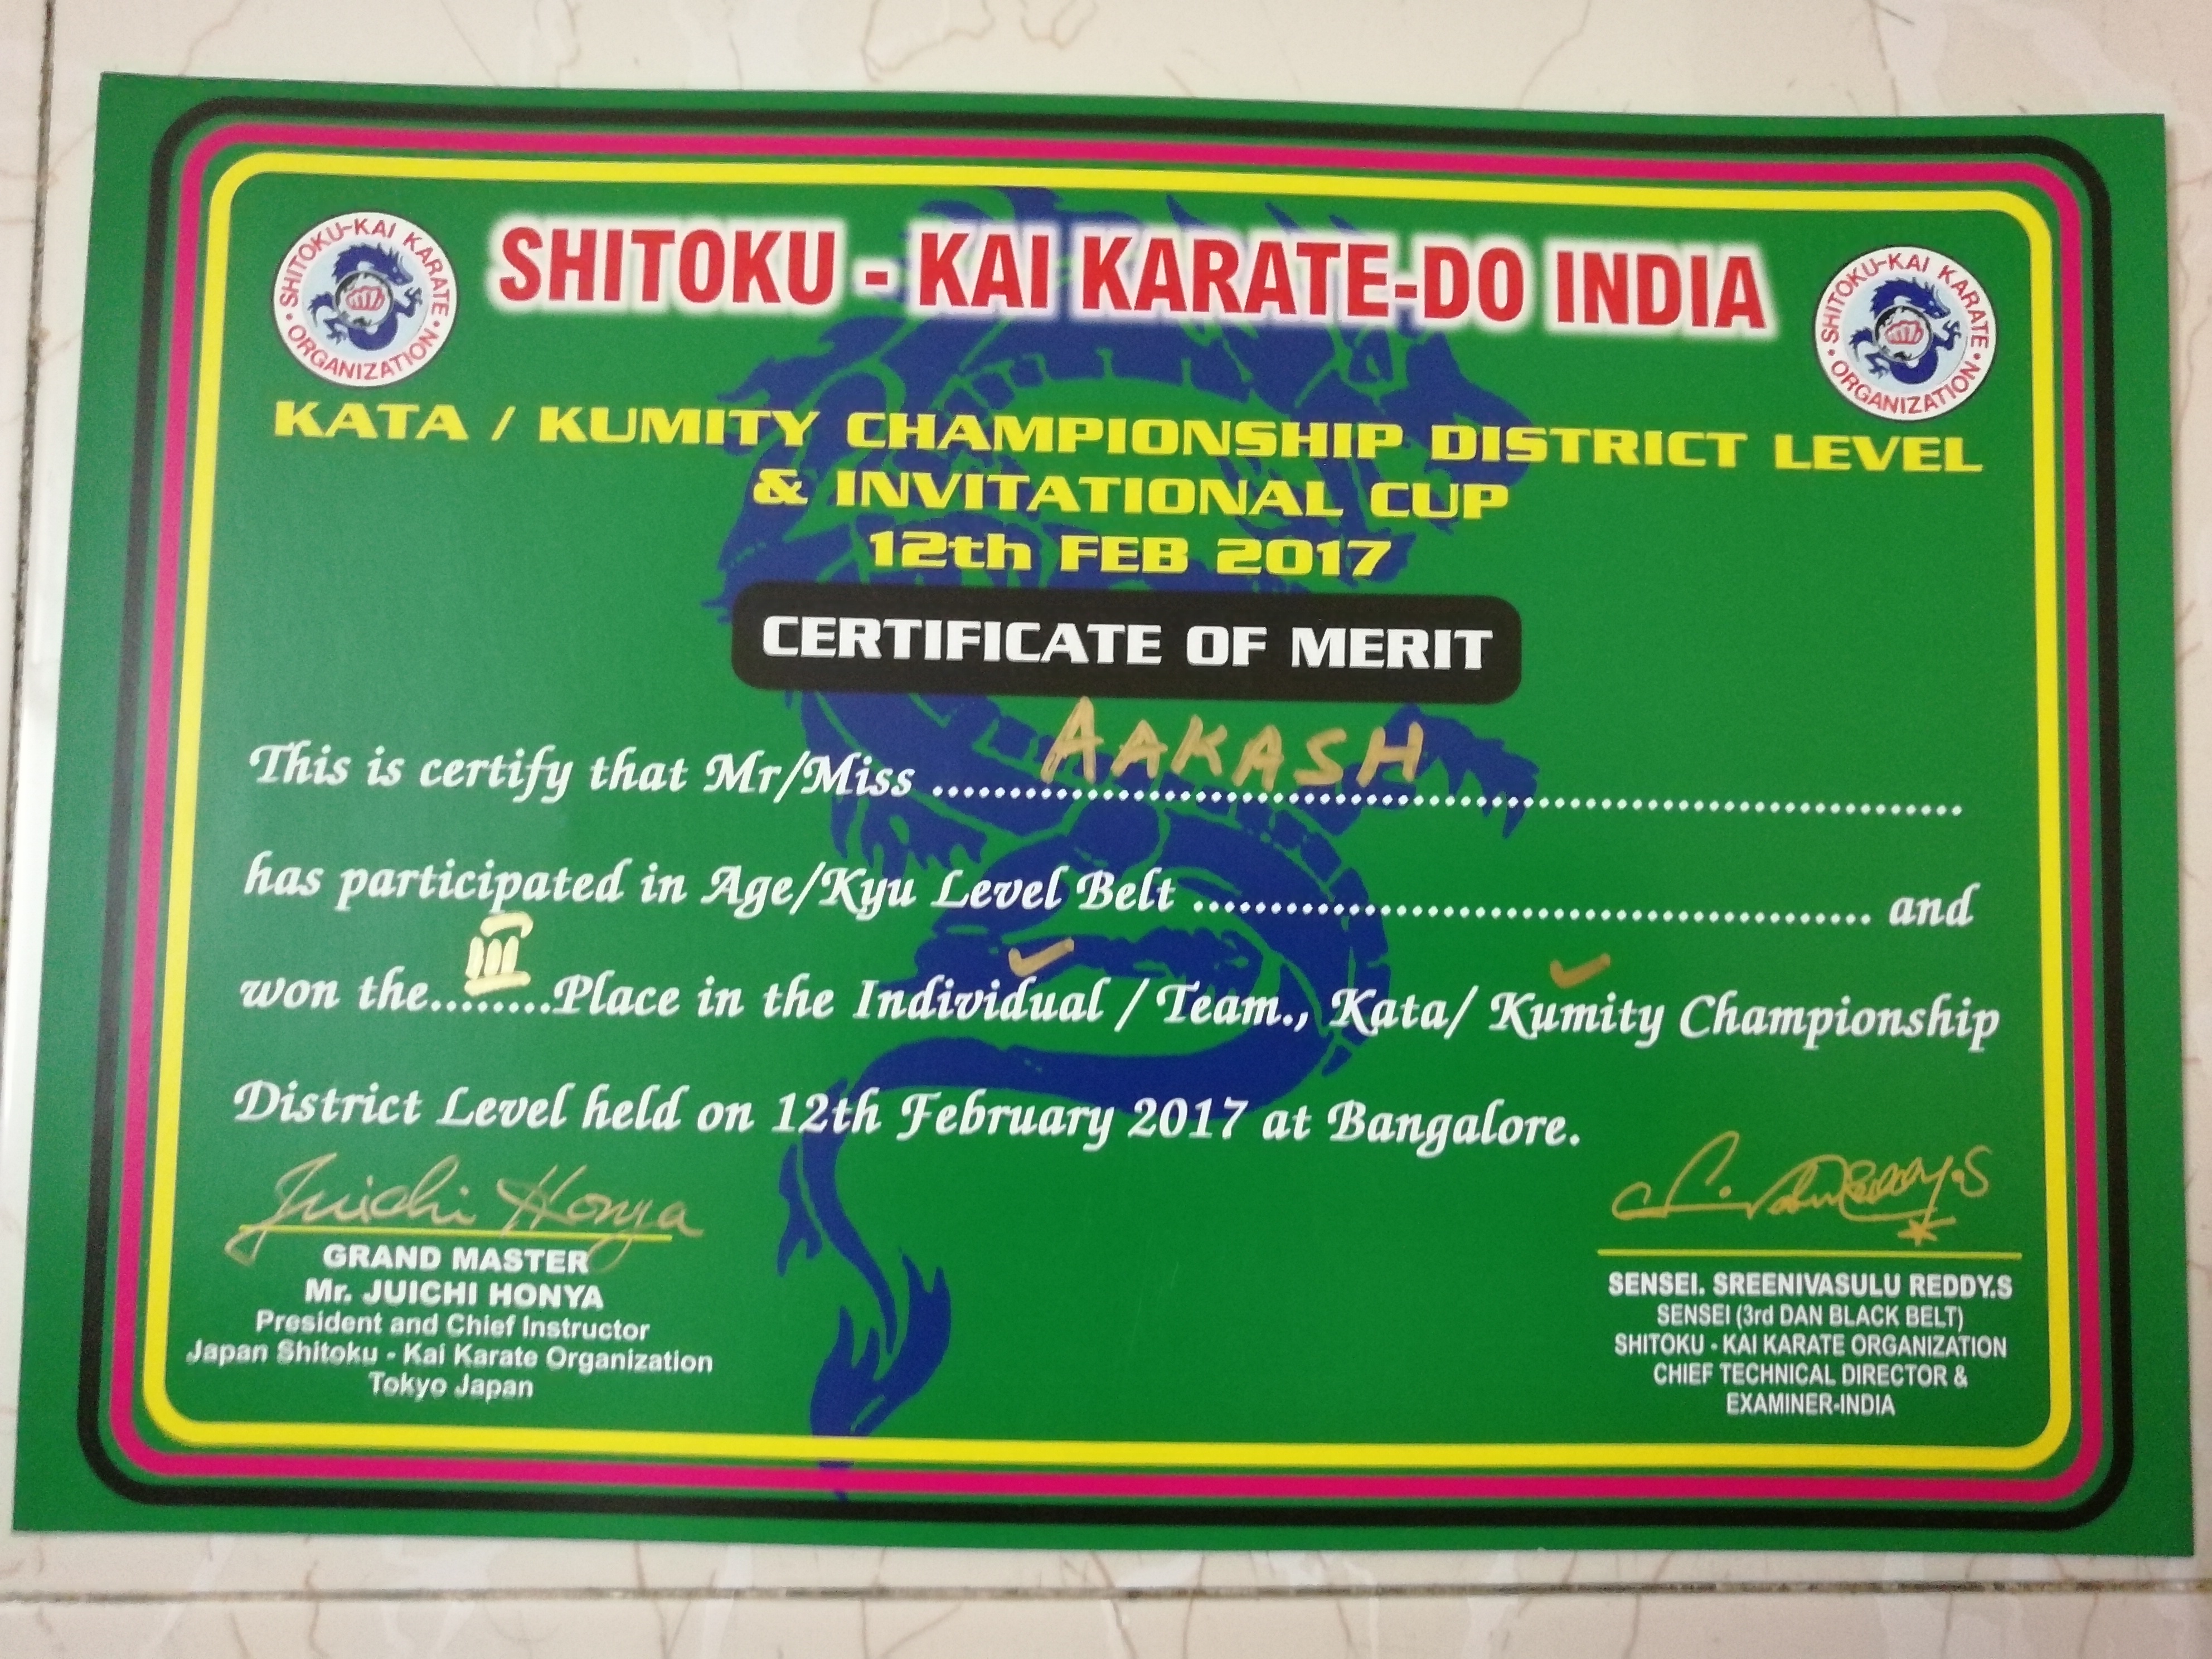 SHITOKU-KAI KARATE
• ORGANIZATION •
SHITOKU - KAI KARATE-DO INDIA
SHITOKU-KAI KARATE
• ORGANIZATION •
KATA / KUMITY CHAMPIONSHIP DISTRICT LEVEL
& INVITATIONAL CUP
12th FEB 2017
CERTIFICATE OF MERIT
This is certify that Mr/Miss AAKASH
has participated in Age/Kyu Level Belt ........................................ and
won the III Place in the Individual ✓ / Team., Kata/ Kumity ✓ Championship
District Level held on 12th February 2017 at Bangalore.
Juichi Honya
GRAND MASTER
Mr. JUICHI HONYA
President and Chief Instructor
Japan Shitoku - Kai Karate Organization
Tokyo Japan
SENSEI. SREENIVASULU REDDY.S
SENSEI (3rd DAN BLACK BELT)
SHITOKU - KAI KARATE ORGANIZATION
CHIEF TECHNICAL DIRECTOR &
EXAMINER-INDIA